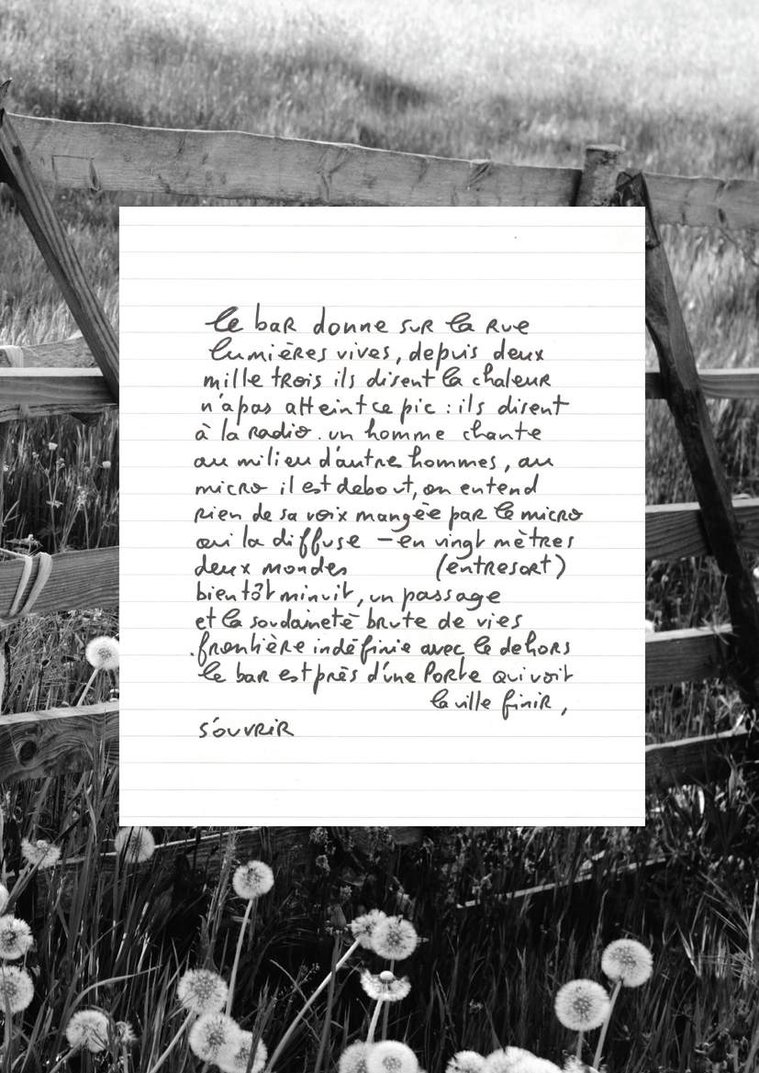 le bar donne sur la rue
lumières vives, depuis deux
mille trois ils disent la chaleur
n'a pas atteint ce pic : ils disent
à la radio. un homme chante
au milieu d'autre hommes, au
micro il est debout, on entend
rien de sa voix mangée par le micro
qui la diffuse – en vingt mètres
deux mondes (entresort)
bientôt minuit, un passage
et la soudaineté brute de vies
.frontière indéfinie avec le dehors
le bar est près d'une Porte qui voit
la ville finir,
s'ouvrir